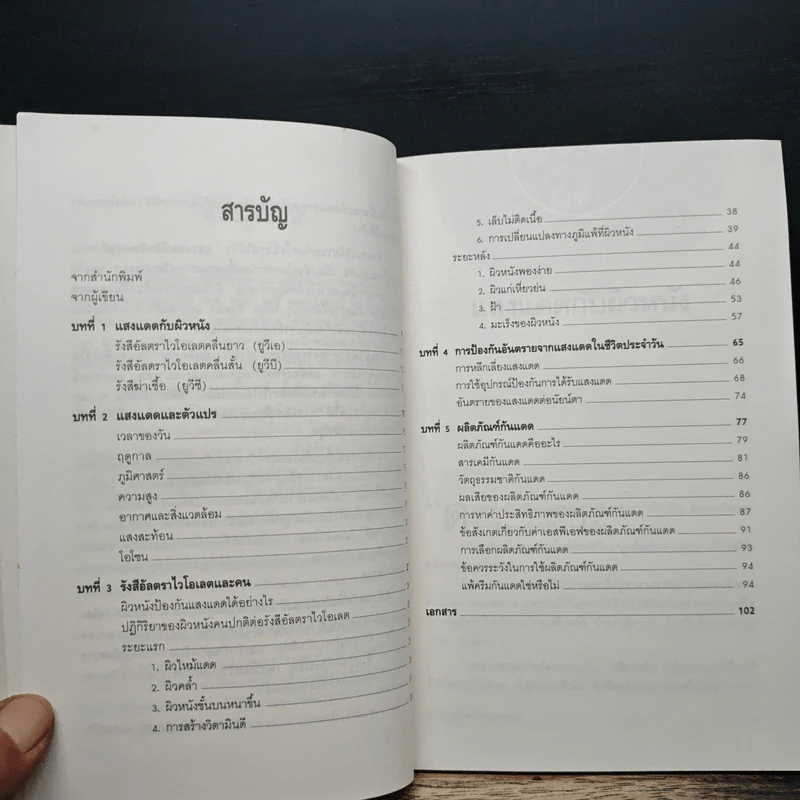 สารบัญ
จากสำนักพิมพ์
จากผู้เขียน
บทที่ 1 แสงแดดกับผิวหนัง
รังสีอัลตราไวโอเลตคลื่นยาว (ยูวีเอ)
รังสีอัลตราไวโอเลตคลื่นสั้น (ยูวีบี)
รังสีฆ่าเชื้อ (ยูวีซี)
บทที่ 2 แสงแดดและตัวแปร
เวลาของวัน
ฤดูกาล
ภูมิศาสตร์
ความสูง
อากาศและสิ่งแวดล้อม
แสงสะท้อน
โอโซน
บทที่ 3 รังสีอัลตราไวโอเลตและคน
ผิวหนังป้องกันแสงแดดได้อย่างไร
ปฏิกิริยาของผิวหนังคนปกติต่อรังสีอัลตราไวโอเลต
ระยะแรก
1. ผิวไหม้แดด
2. ผิวคล้ำ
3. ผิวหนังชั้นบนหนาขึ้น
4. การสร้างวิตามินดี
5. เล็บไม่ติดเนื้อ 38
6. การเปลี่ยนแปลงทางภูมิแพ้ที่ผิวหนัง 39
ระยะหลัง 44
1. ผิวหนังพองง่าย 44
2. ผิวแก่เหี่ยวย่น 46
3. ฝ้า 53
4. มะเร็งของผิวหนัง 57
บทที่ 4 การป้องกันอันตรายจากแสงแดดในชีวิตประจำวัน 65
การหลีกเลี่ยงแสงแดด 66
การใช้อุปกรณ์ป้องกันการได้รับแสงแดด 68
อันตรายของแสงแดดต่อนัยน์ตา 74
บทที่ 5 ผลิตภัณฑ์กันแดด 77
ผลิตภัณฑ์กันแดดคืออะไร 79
สารเคมีกันแดด 81
วัตถุธรรมชาติกันแดด 86
ผลเสียของผลิตภัณฑ์กันแดด 86
การหาค่าประสิทธิภาพของผลิตภัณฑ์กันแดด 87
ข้อสังเกตเกี่ยวกับค่าเอสพีเอฟของผลิตภัณฑ์กันแดด 91
การเลือกผลิตภัณฑ์กันแดด 93
ข้อควรระวังในการใช้ผลิตภัณฑ์กันแดด 94
แพ้ครีมกันแดดใช่หรือไม่ 94
เอกสาร 102